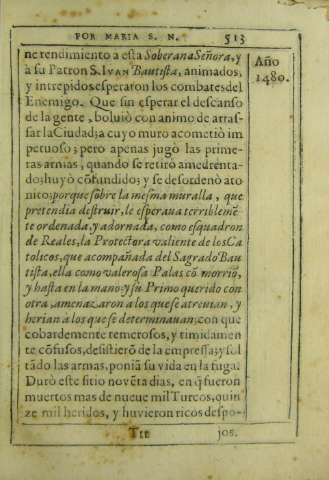 POR MARIA S. N. 513
Año
1480.
ne rendimiento a esta Soberana Señora, y
à su Patron S. IVAN Bautista, animados,
y intrepidos esperaron los combates del
Enemigo. Que sin esperar el descanso
de la gente, boluiò con animo de arras-
sar la Ciudad; a cuyo muro acometiò im
petuoso; pero apenas jugò las prime-
ras armas, quando se retirò amedrenta-
do; huyò cõfundido; y se desordenò ato
nito; porque sobre la mesma muralla, que
pretendia destruir, le esperaua terriblemẽ-
te ordenada, y adornada, como esquadron
de Reales, la Protectora valiente de los Ca
tolicos, que acompañada del Sagrado Bau
tista, ella como valerosa Palas cõ morriõ,
y hasta en la mano; y su Primo querido con
otra, amenazaron a los que se atreuian, y
herian a los que se determinauan; con que
cobardemente temerosos, y timidamen
te cõfusos, desistierõ de la empressa; y sol
tãdo las armas, poniã su vida en la fuga.
Durò este sitio novẽta dias, en q̃ fueron
muertos mas de nueue mil Turcos, quin
ze mil heridos, y huvieron ricos despo-
Ttt jos.